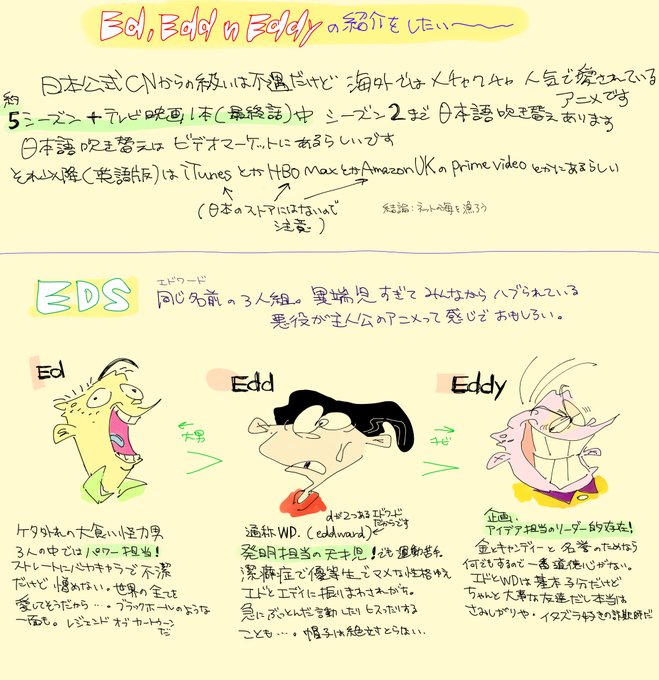 Ed, Edd n Eddy の紹介をしたい〜〜
日本公式CNからの扱いは不遇だけど 海外ではメチャクチャ人気で愛されている
アニメです
約
5シーズン+テレビ映画1本(最終話)中 シーズン2まで 日本語吹き替えあります
日本語吹き替えは ビデオマーケットにあるらしいです
それ以降(英語版)は iTunesとか HBO MaxとかAmazonUKのprime videoとかにあるらしい
(日本のストアにはないので
注意)
結論:ネットの海を漁ろう
エドワード
EDS 同じ名前の3人組。異端児すぎてみんなからハブられている
悪役が主人公のアニメって感じでおもしろい。
Ed
Edd
Eddy
←大男
→チビ
ケタ外れの大食い怪力男
3人の中ではパワー担当!
ストレートにバカキャラで不潔
だけど憎めない。世界の全てを
愛してそうだから…。ブラックホールのような
一面も。レジェンドオブカートゥーン
だ
dが2つあるエドワード
だからです
通称WD.(eddward)
発明担当の天才児!でも運動苦手
潔癖症で優等生でマメな性格ゆえ
エドとエディに振りまわされがち。
急にぶっとんだ言動したりヒスったりする
ことも…。帽子は絶対とらない
企画、
アイデア担当のリーダー的存在!
金とキャンディーと名誉のためなら
何でもするので一番道徳心がない。
エドとWDは基本子分だけど
ちゃんと大事な友達だし本当は
さみしがりや・イタズラ好きの詐欺師だ